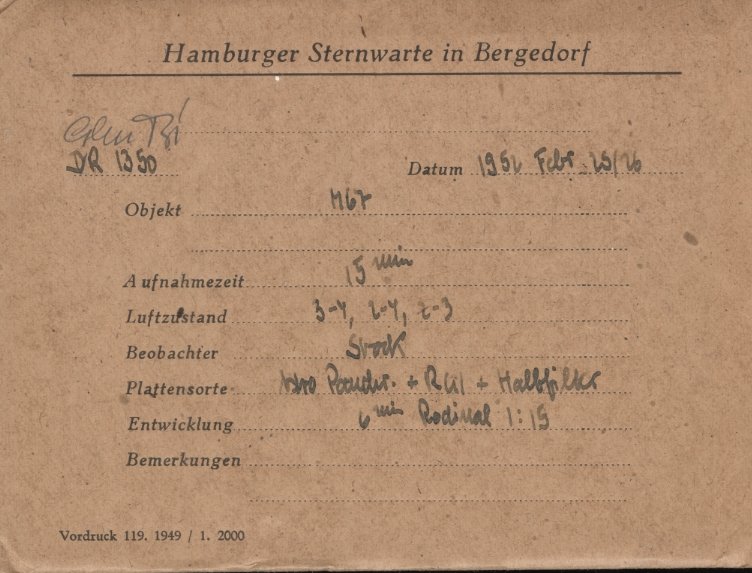 Hamburger Sternwarte in Bergedorf
DR 1350
Datum 1952 Febr. 25/26
Objekt M67
Aufnahmezeit 15 min
Luftzustand 3-4, 2-4, 2-3
Beobachter Stock
Plattensorte + RG1 + Halbfilter
Entwicklung 6 min Rodinal 1:15
Bemerkungen
Vordruck 119. 1949 / 1. 2000